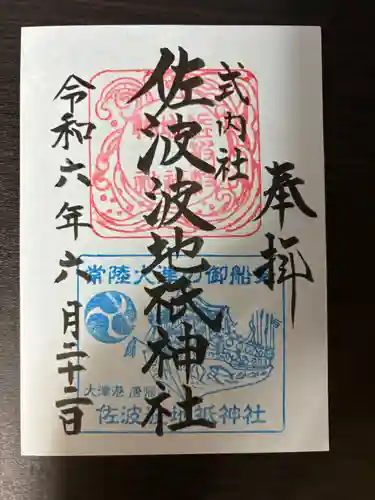 奉拝
式内社
佐波波地祇神社
令和六年六月二十二日
常陸大津の御船祭
大津港 唐帰
佐波波地祇神社